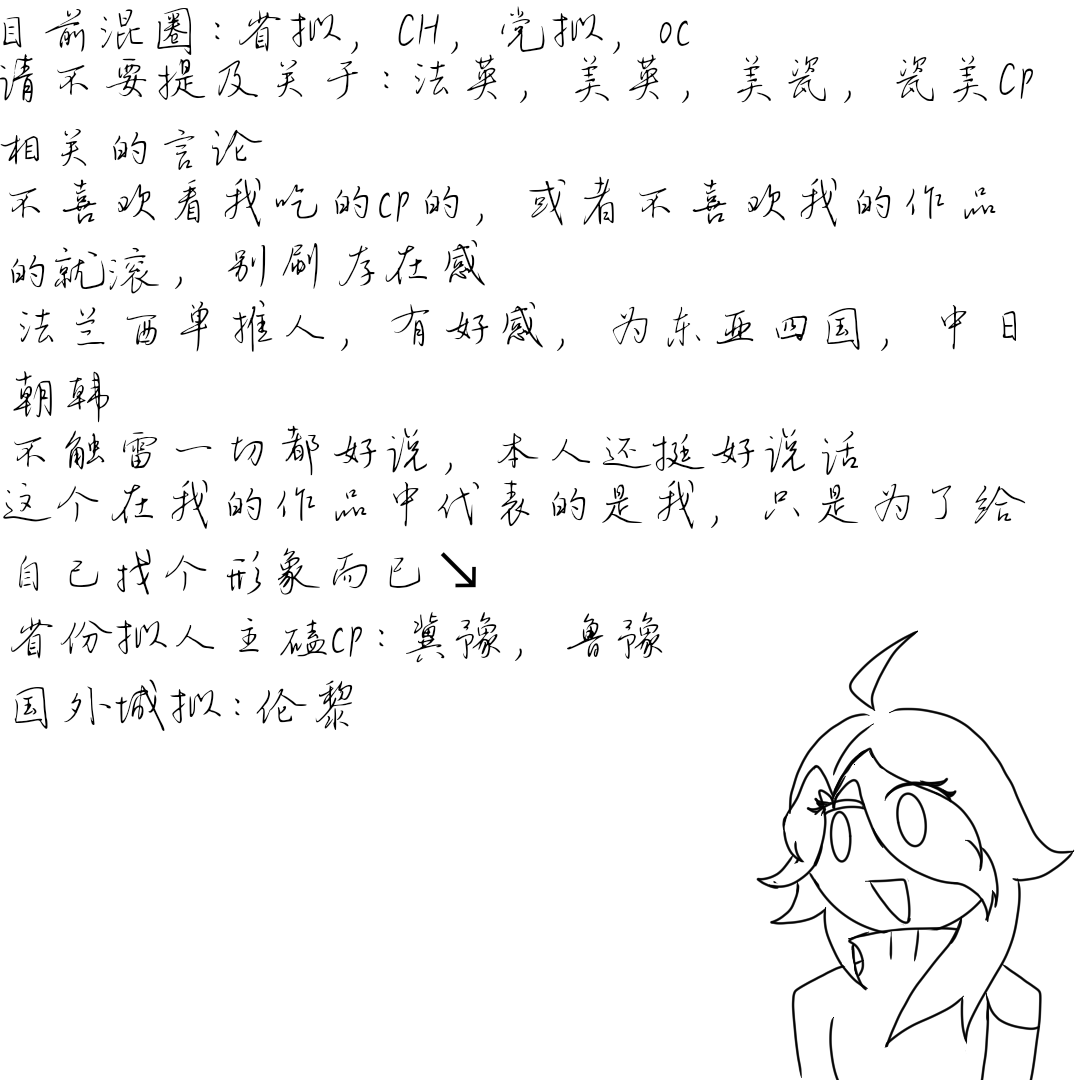 目前混圈:省拟,CH,党拟,oc
请不要提及关于:法英,美英,美瓷,瓷美Cp
相关的言论
不喜欢看我吃的cp的,或者不喜欢我的作品
的就滚,别刷存在感
法兰西单推人,有好感,为东亚四国,中日
朝韩
不触雷一切都好说,本人还挺好说话
这个在我的作品中代表的是我,只是为了给
自己找个形象而已↘
省份拟人主磕cp:冀豫,鲁豫
国外城拟:伦黎